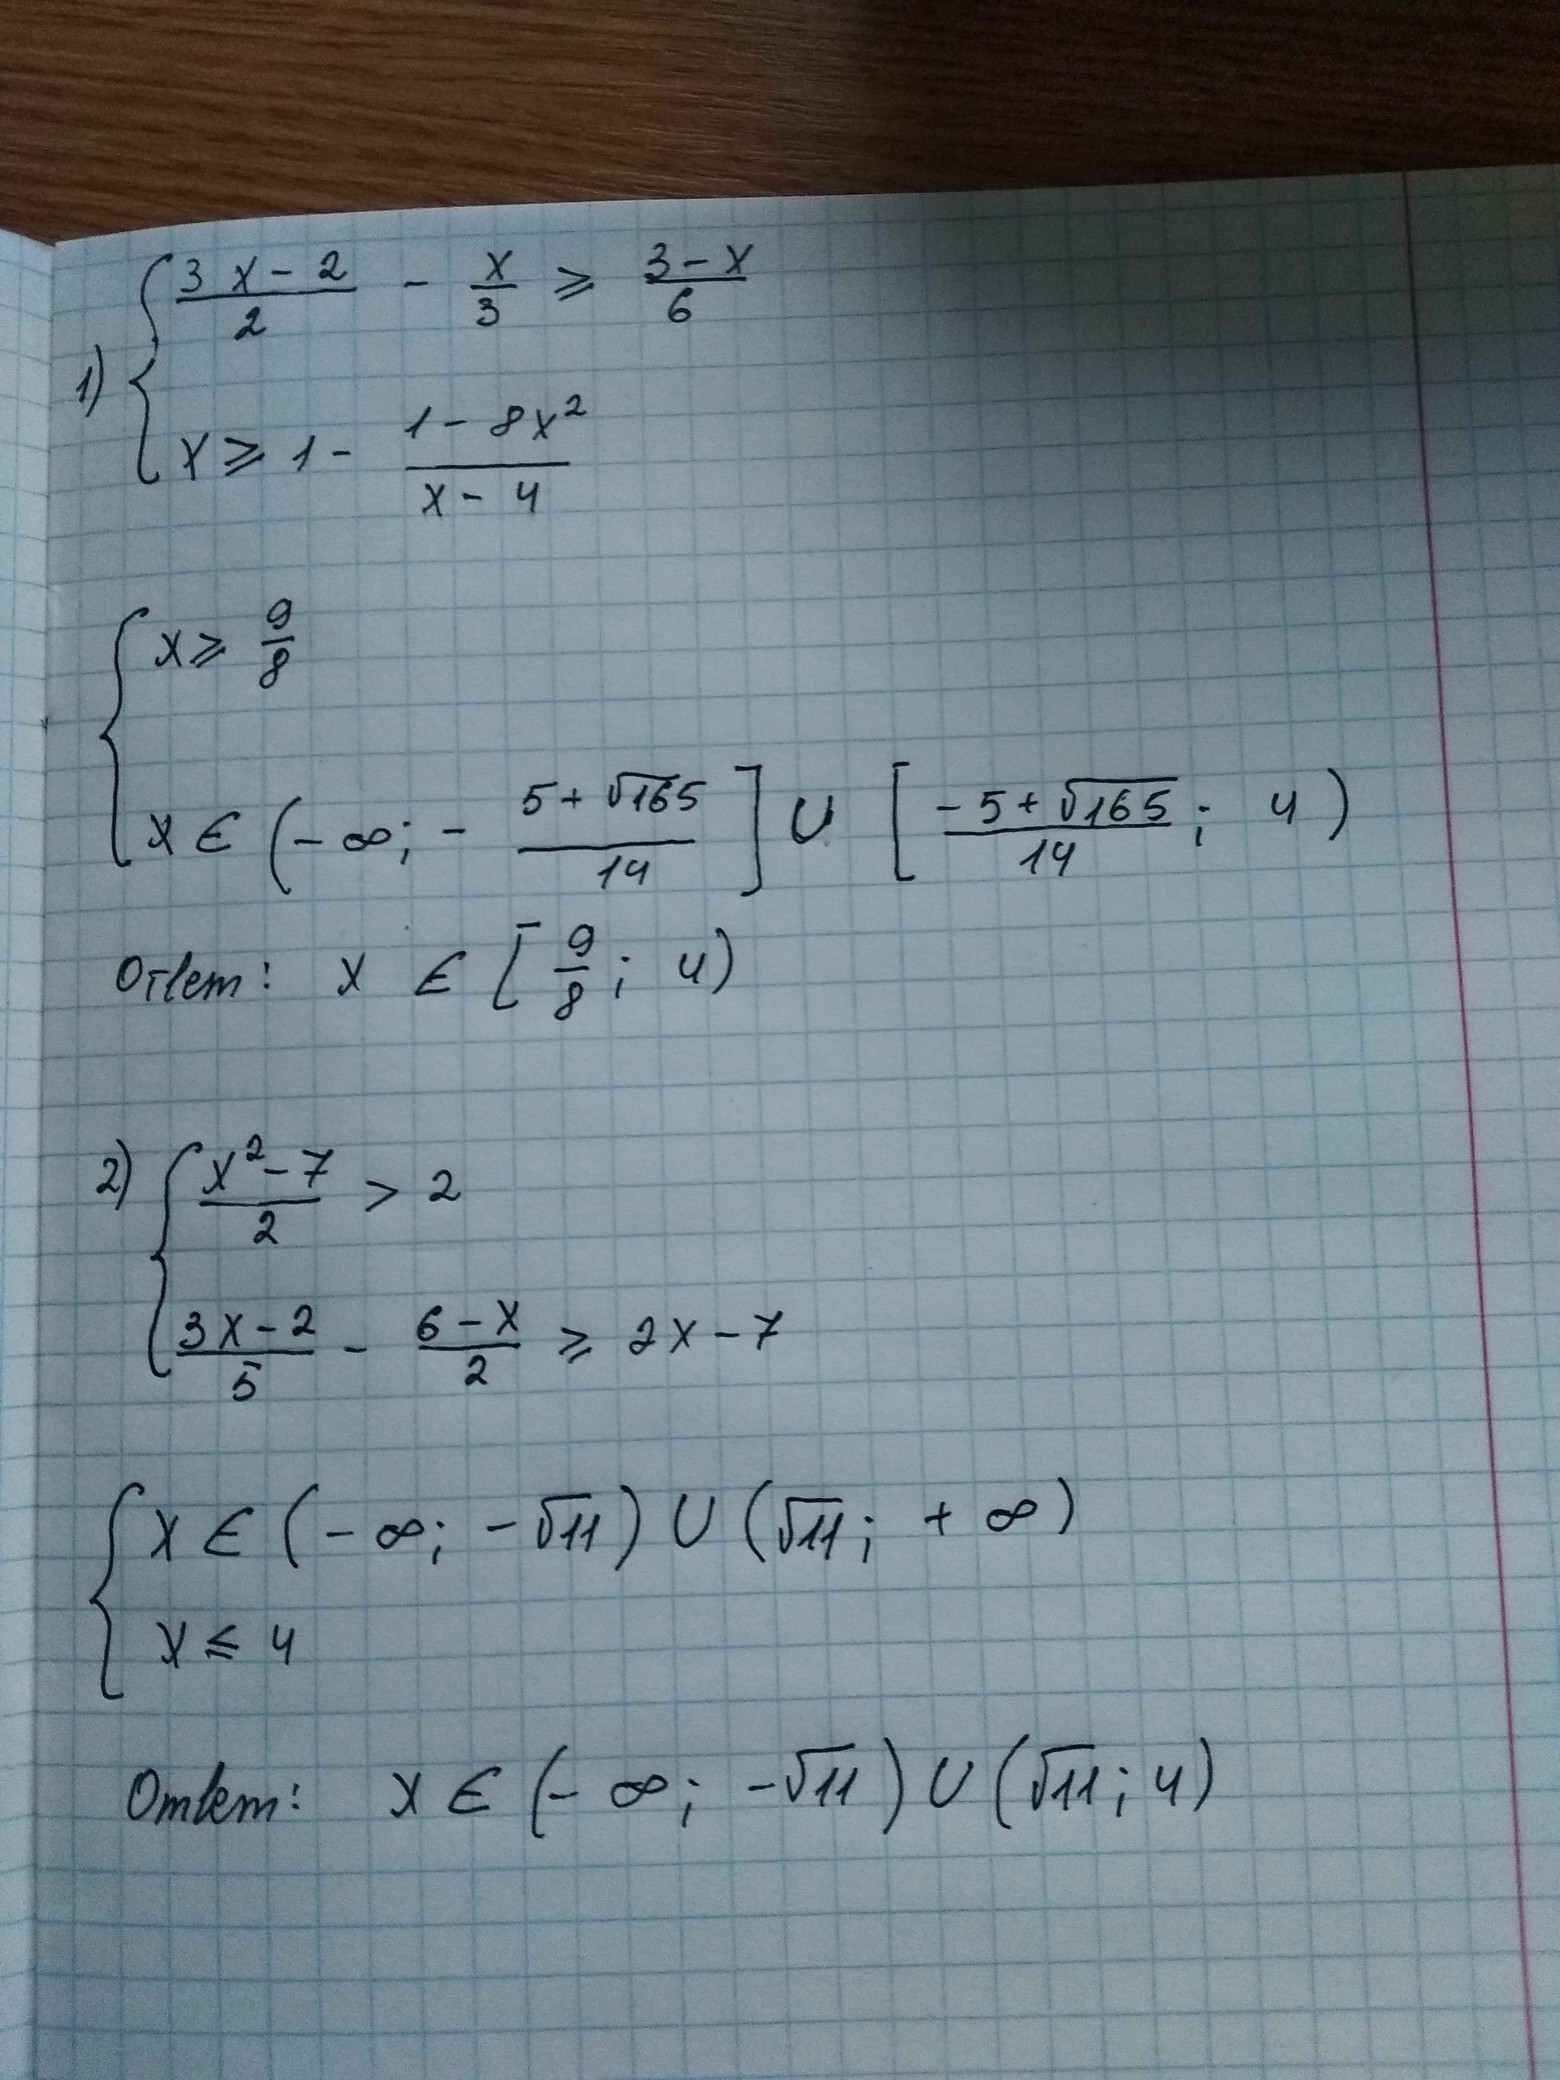 1) { (3x - 2)/2 - x/3 ⩾ (3 - x)/6
x ⩾ 1 - (1 - 8x²)/(x - 4)
{ x ⩾ 9/8
x ∈ (-∞; - (5 + √165)/14] ∪ [(-5 + √165)/14; 4)
Ответ: x ∈ [9/8; 4)
2) { (x² - 7)/2 > 2
(3x - 2)/5 - (6 - x)/2 ⩾ 2x - 7
{ x ∈ (-∞; -√11) ∪ (√11; +∞)
x ⩽ 4
Ответ: x ∈ (-∞; -√11) ∪ (√11; 4)